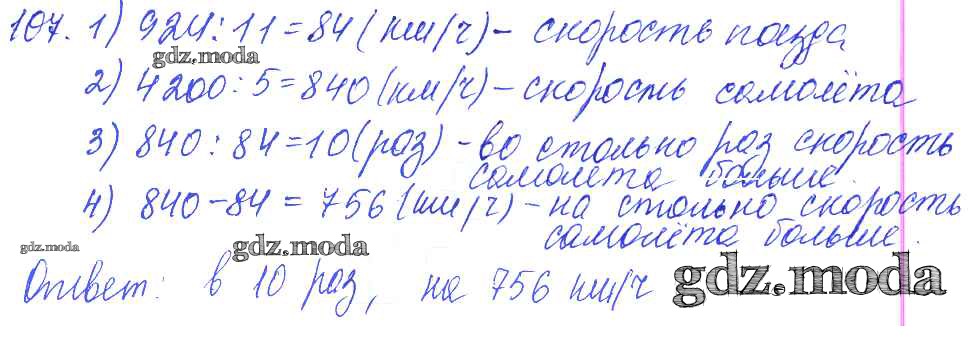 107. 1) 924:11=84(км/ч) – скорость поезда
gdz.moda
2) 4200:5=840(км/ч) – скорость самолёта
3) 840:84=10(раз) – во столько раз скорость
самолёта больше.
4) 840-84=756(км/ч) – на столько скорость
самолёта больше.
gdz.moda
gdz.moda
Ответ: в 10 раз, на 756 км/ч
gdz.moda